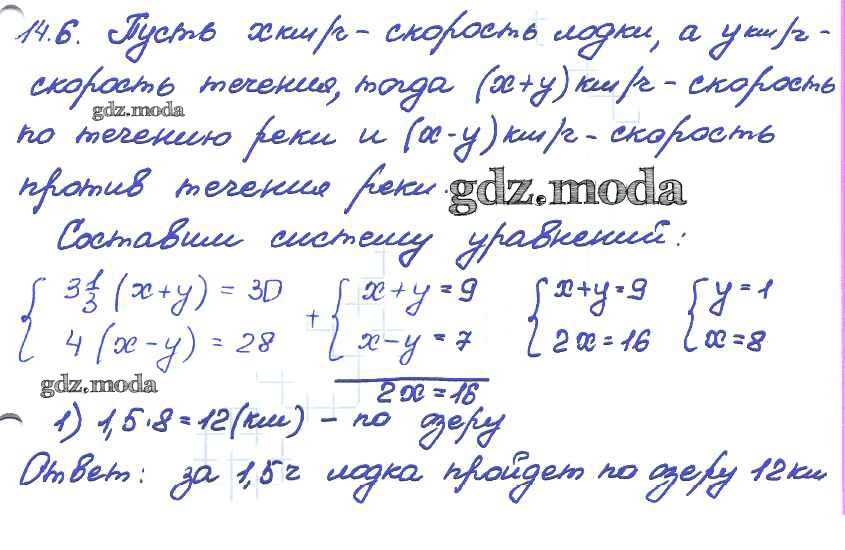 14.6. Пусть x км/ч - скорость лодки, а y км/ч -
скорость течения, тогда (x+y) км/ч - скорость
gdz.moda
по течению реки и (x-y) км/ч - скорость
против течения реки. gdz.moda
Составим систему уравнений:
{ 3 1/3 (x+y) = 30 + { x+y = 9 { x+y = 9 { y = 1
4 (x-y) = 28 x-y = 7 2x = 16 x = 8
gdz.moda 2x = 16
1) 1,5·8=12(км) - по озеру
Ответ: за 1,5ч лодка пройдет по озеру 12км